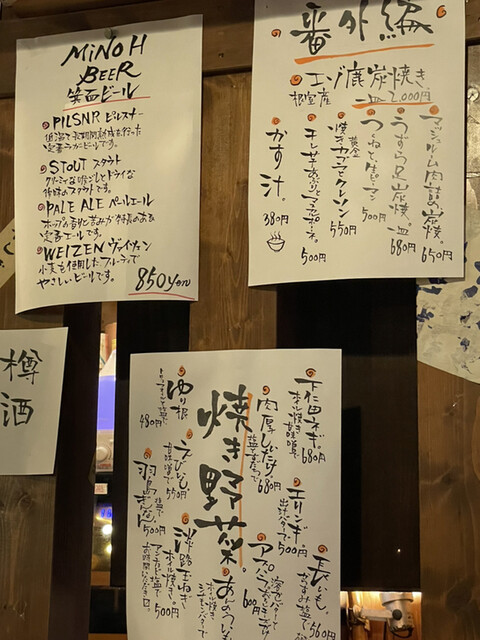 MINOH
BEER
箕面ビール
PILSNR ピルスナー
低温で長期間熟成を行った
定番ラガービールです。
STOUT スタウト
クリーミィな喉ごしとドライな
後味のスタウトです。
PALE ALE ペールエール
ホップの香りと苦みが特長のある
定番エールです。
WEIZEN ヴァイツェン
小麦も使用したフルーティで
やさしいビールです。
850yen
番外編
エゾ鹿炭焼き、
根室産
一皿 2,000円
マッシュルーム肉詰め炭焼。
650円
うずら足炭焼。一皿
680円
つくねと生ピーマン
500円
焼きカブとクレソン
550円
500円
かす汁。
380円
樽酒
焼き野菜。
下仁田ネギ。
680円
肉厚しいたけ
塩とすだちで
680円
ゆり根
480円
エリンギ。
500円
えびいも
550円
長いも。
羽島ぎんなん
塩で
500円
淡路玉ねぎ
ホイル焼き。
アンチョビ塩で
お時間いただきます。
500円
600円